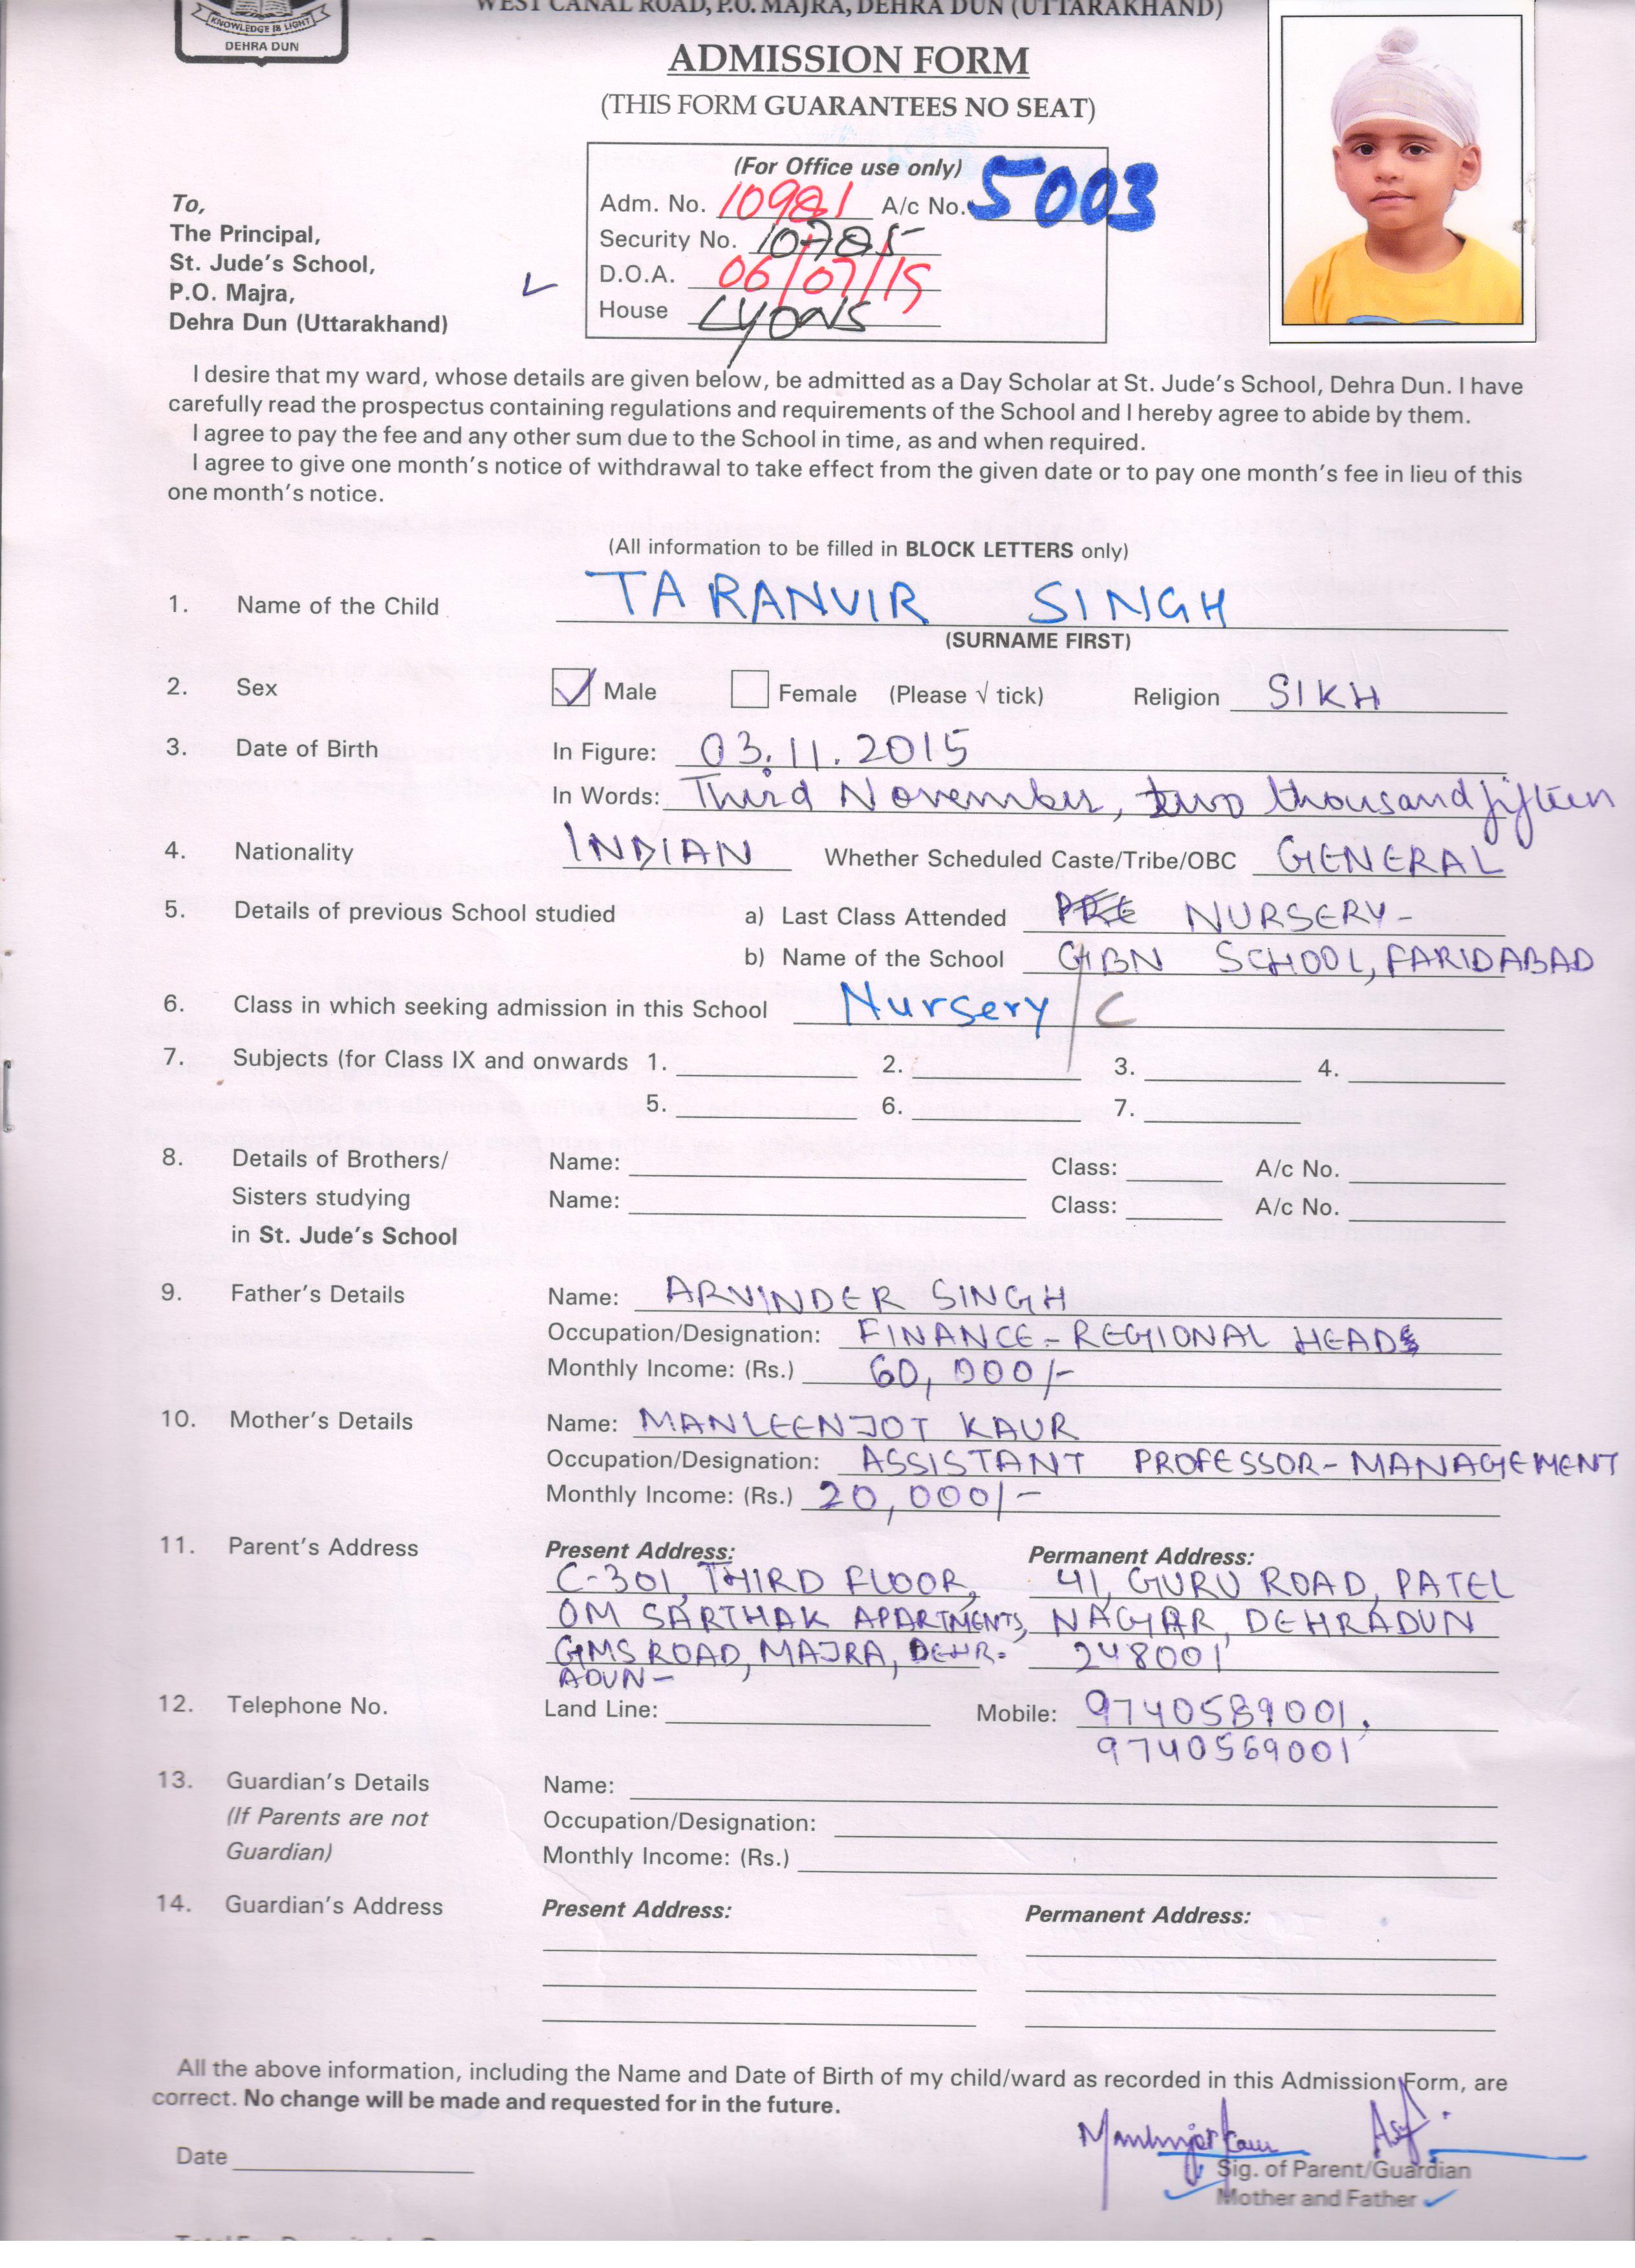 KNOWLEDGE IS LIGHT
DEHRA DUN
WEST CANAL ROAD, P.O. MAJRA, DEHRA DUN (UTTARAKHAND)
ADMISSION FORM
(THIS FORM GUARANTEES NO SEAT)
(For Office use only)
Adm. No. 10981 A/c No. 5003
Security No. 10785
D.O.A. 06/07/19
House Lyons
To,
The Principal,
St. Jude's School,
P.O. Majra,
Dehra Dun (Uttarakhand)
I desire that my ward, whose details are given below, be admitted as a Day Scholar at St. Jude's School, Dehra Dun. I have
carefully read the prospectus containing regulations and requirements of the School and I hereby agree to abide by them.
I agree to pay the fee and any other sum due to the School in time, as and when required.
I agree to give one month's notice of withdrawal to take effect from the given date or to pay one month's fee in lieu of this
one month's notice.
(All information to be filled in BLOCK LETTERS only)
1. Name of the Child TARANVIR SINGH
(SURNAME FIRST)
2. Sex ✓ Male Female (Please √ tick) Religion SIKH
3. Date of Birth In Figure: 03.11.2015
In Words: Third November, two thousand fifteen
4. Nationality INDIAN Whether Scheduled Caste/Tribe/OBC GENERAL
5. Details of previous School studied a) Last Class Attended PRE NURSERY-
b) Name of the School GBN SCHOOL, FARIDABAD
6. Class in which seeking admission in this School Nursery / C
7. Subjects (for Class IX and onwards 1. 2. 3. 4.
5. 6. 7.
8. Details of Brothers/ Name: Class: A/c No.
Sisters studying Name: Class: A/c No.
in St. Jude's School
9. Father's Details Name: ARVINDER SINGH
Occupation/Designation: FINANCE - REGIONAL HEAD
Monthly Income: (Rs.) 60,000/-
10. Mother's Details Name: MANLEENJOT KAUR
Occupation/Designation: ASSISTANT PROFESSOR - MANAGEMENT
Monthly Income: (Rs.) 20,000/-
11. Parent's Address Present Address: Permanent Address:
C-301, THIRD FLOOR, 41, GURU ROAD, PATEL
OM SARTHAK APARTMENTS, NAGAR, DEHRADUN
GMS ROAD, MAJRA, DEHR- 248001
ADUN-
12. Telephone No. Land Line: Mobile: 9740589001,
9740569001
13. Guardian's Details Name:
(If Parents are not Occupation/Designation:
Guardian) Monthly Income: (Rs.)
14. Guardian's Address Present Address: Permanent Address:
All the above information, including the Name and Date of Birth of my child/ward as recorded in this Admission Form, are
correct. No change will be made and requested for in the future.
Manleenjot Kaur
Date Sig. of Parent/Guardian
Mother and Father